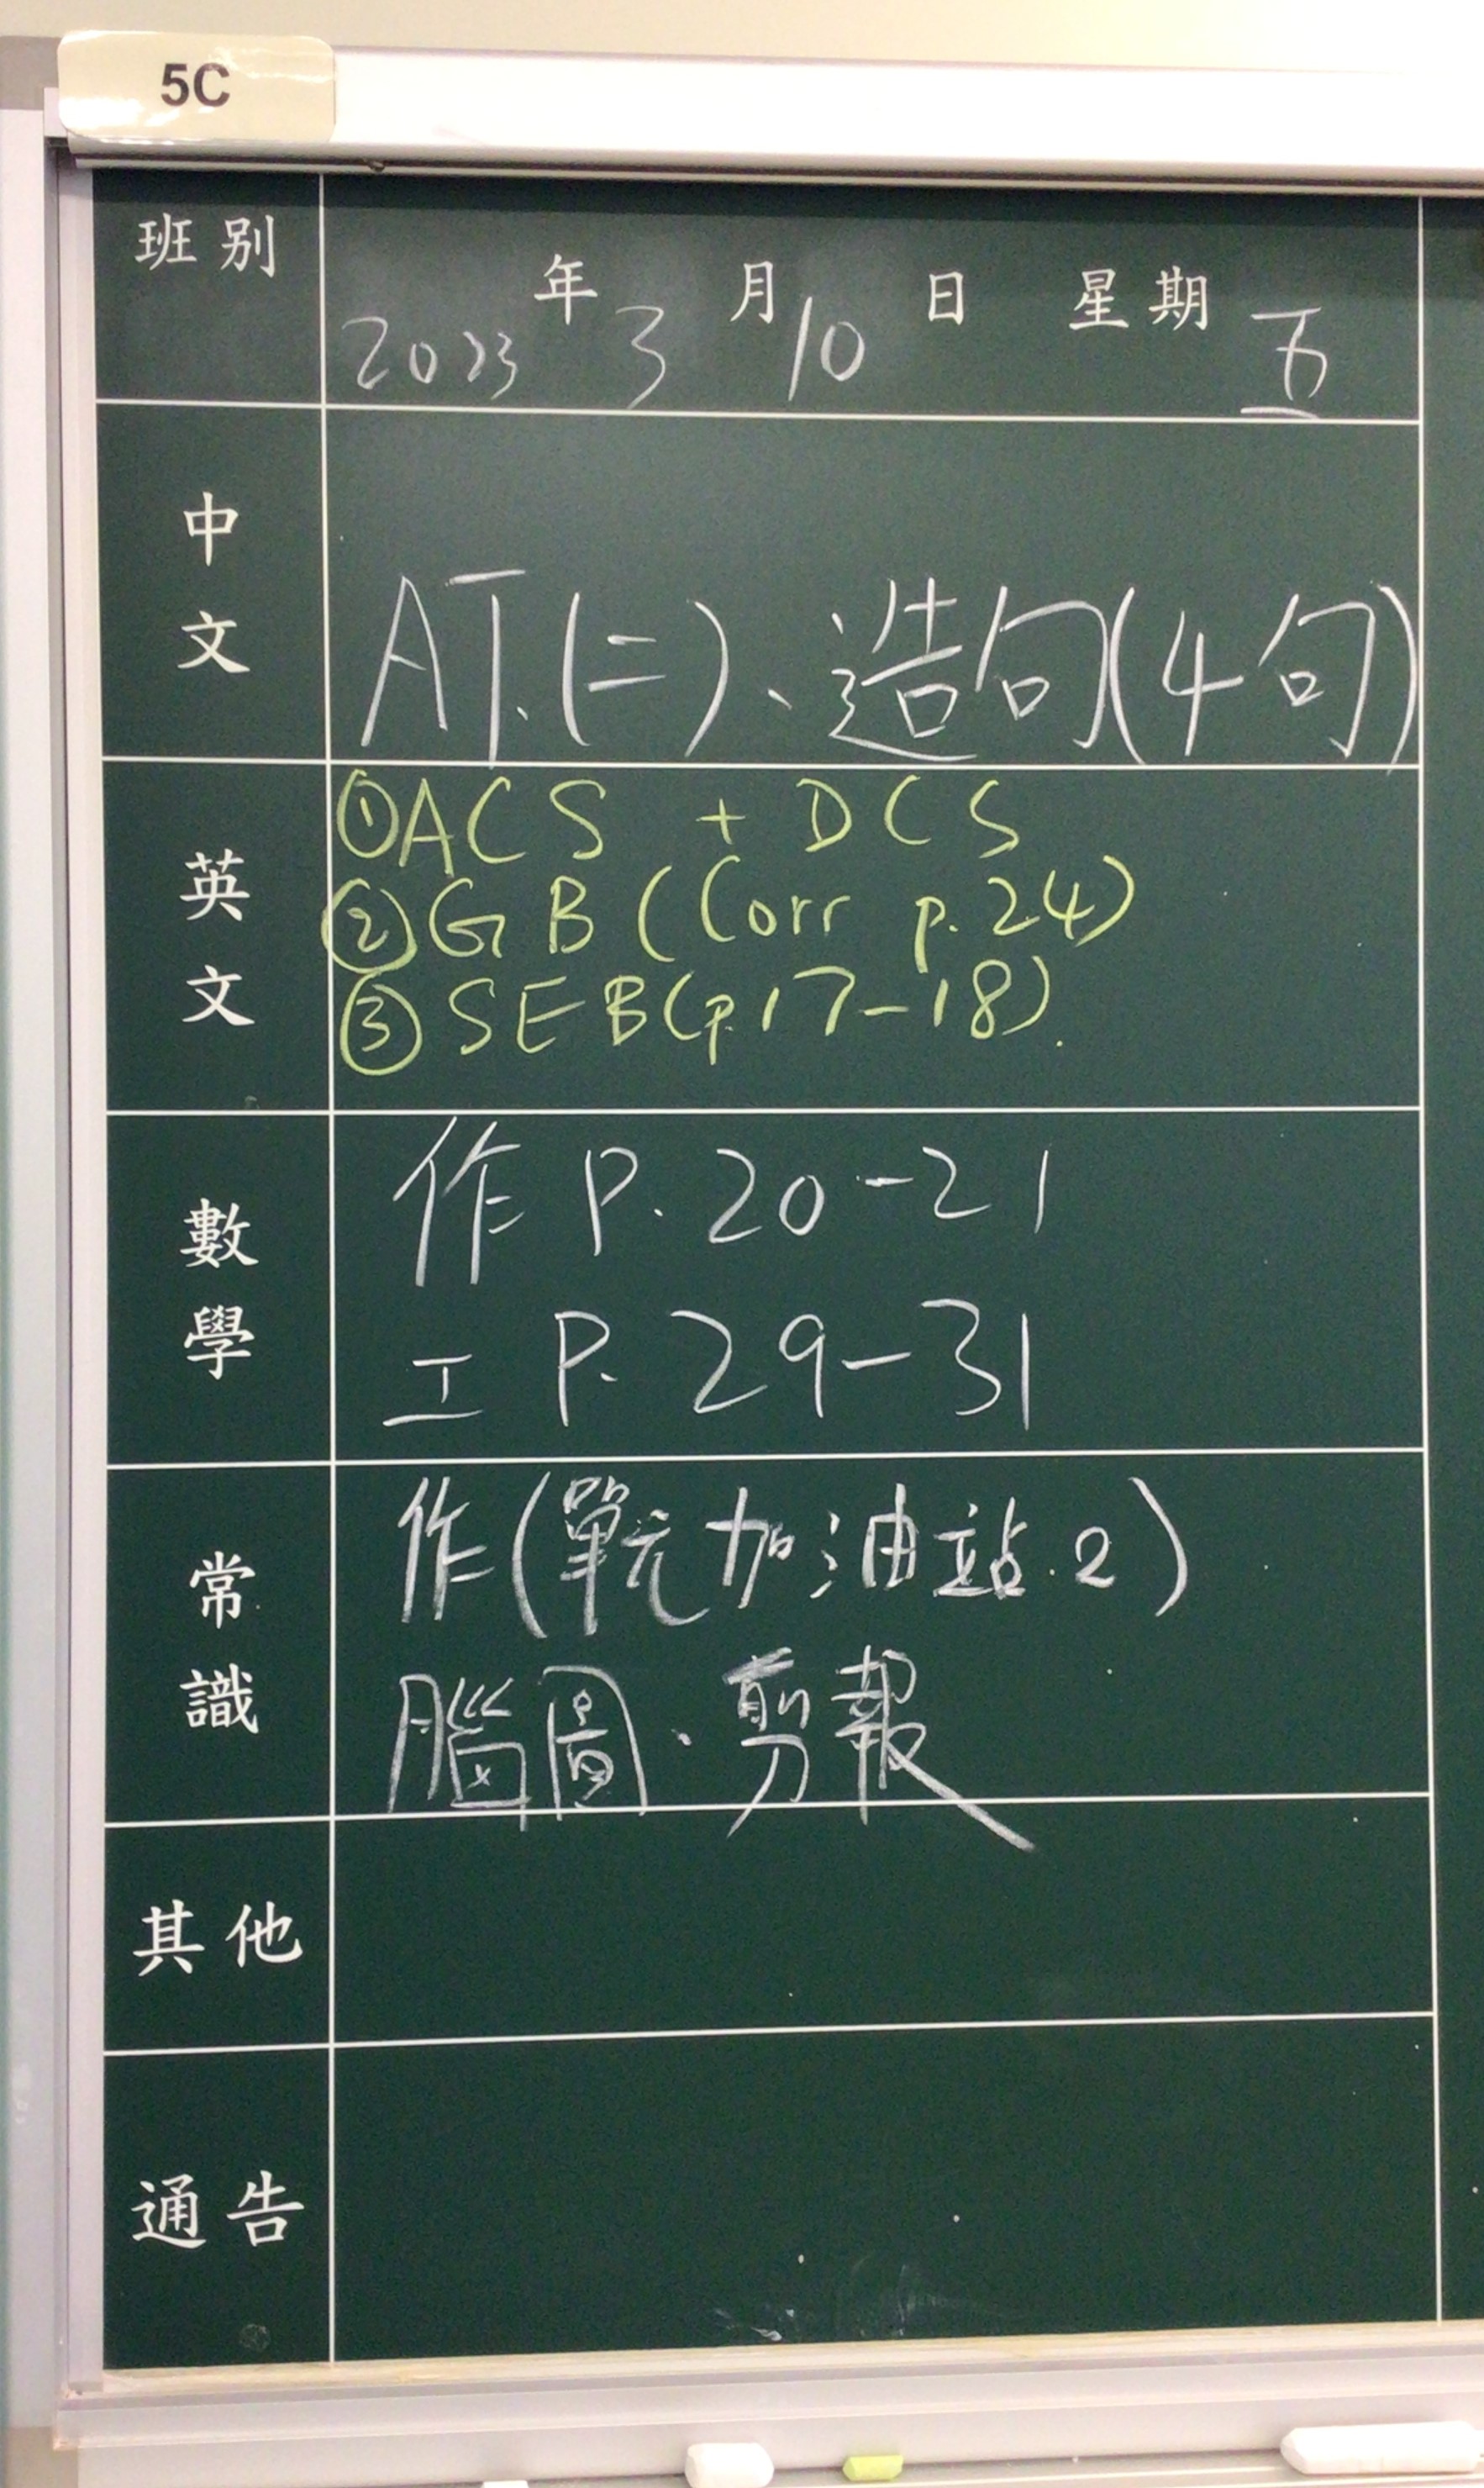 5C
班別
年 月 日 星期
2023 3 10 五
中文
AT.(二)、造句(4句)
英文
①ACS + DCS
②GB (Corr p.24)
③SEB(p.17-18).
數學
作 P. 20-21
工 P. 29-31
常識
作(單元加油站.2)
腦圖、剪報
其他
通告